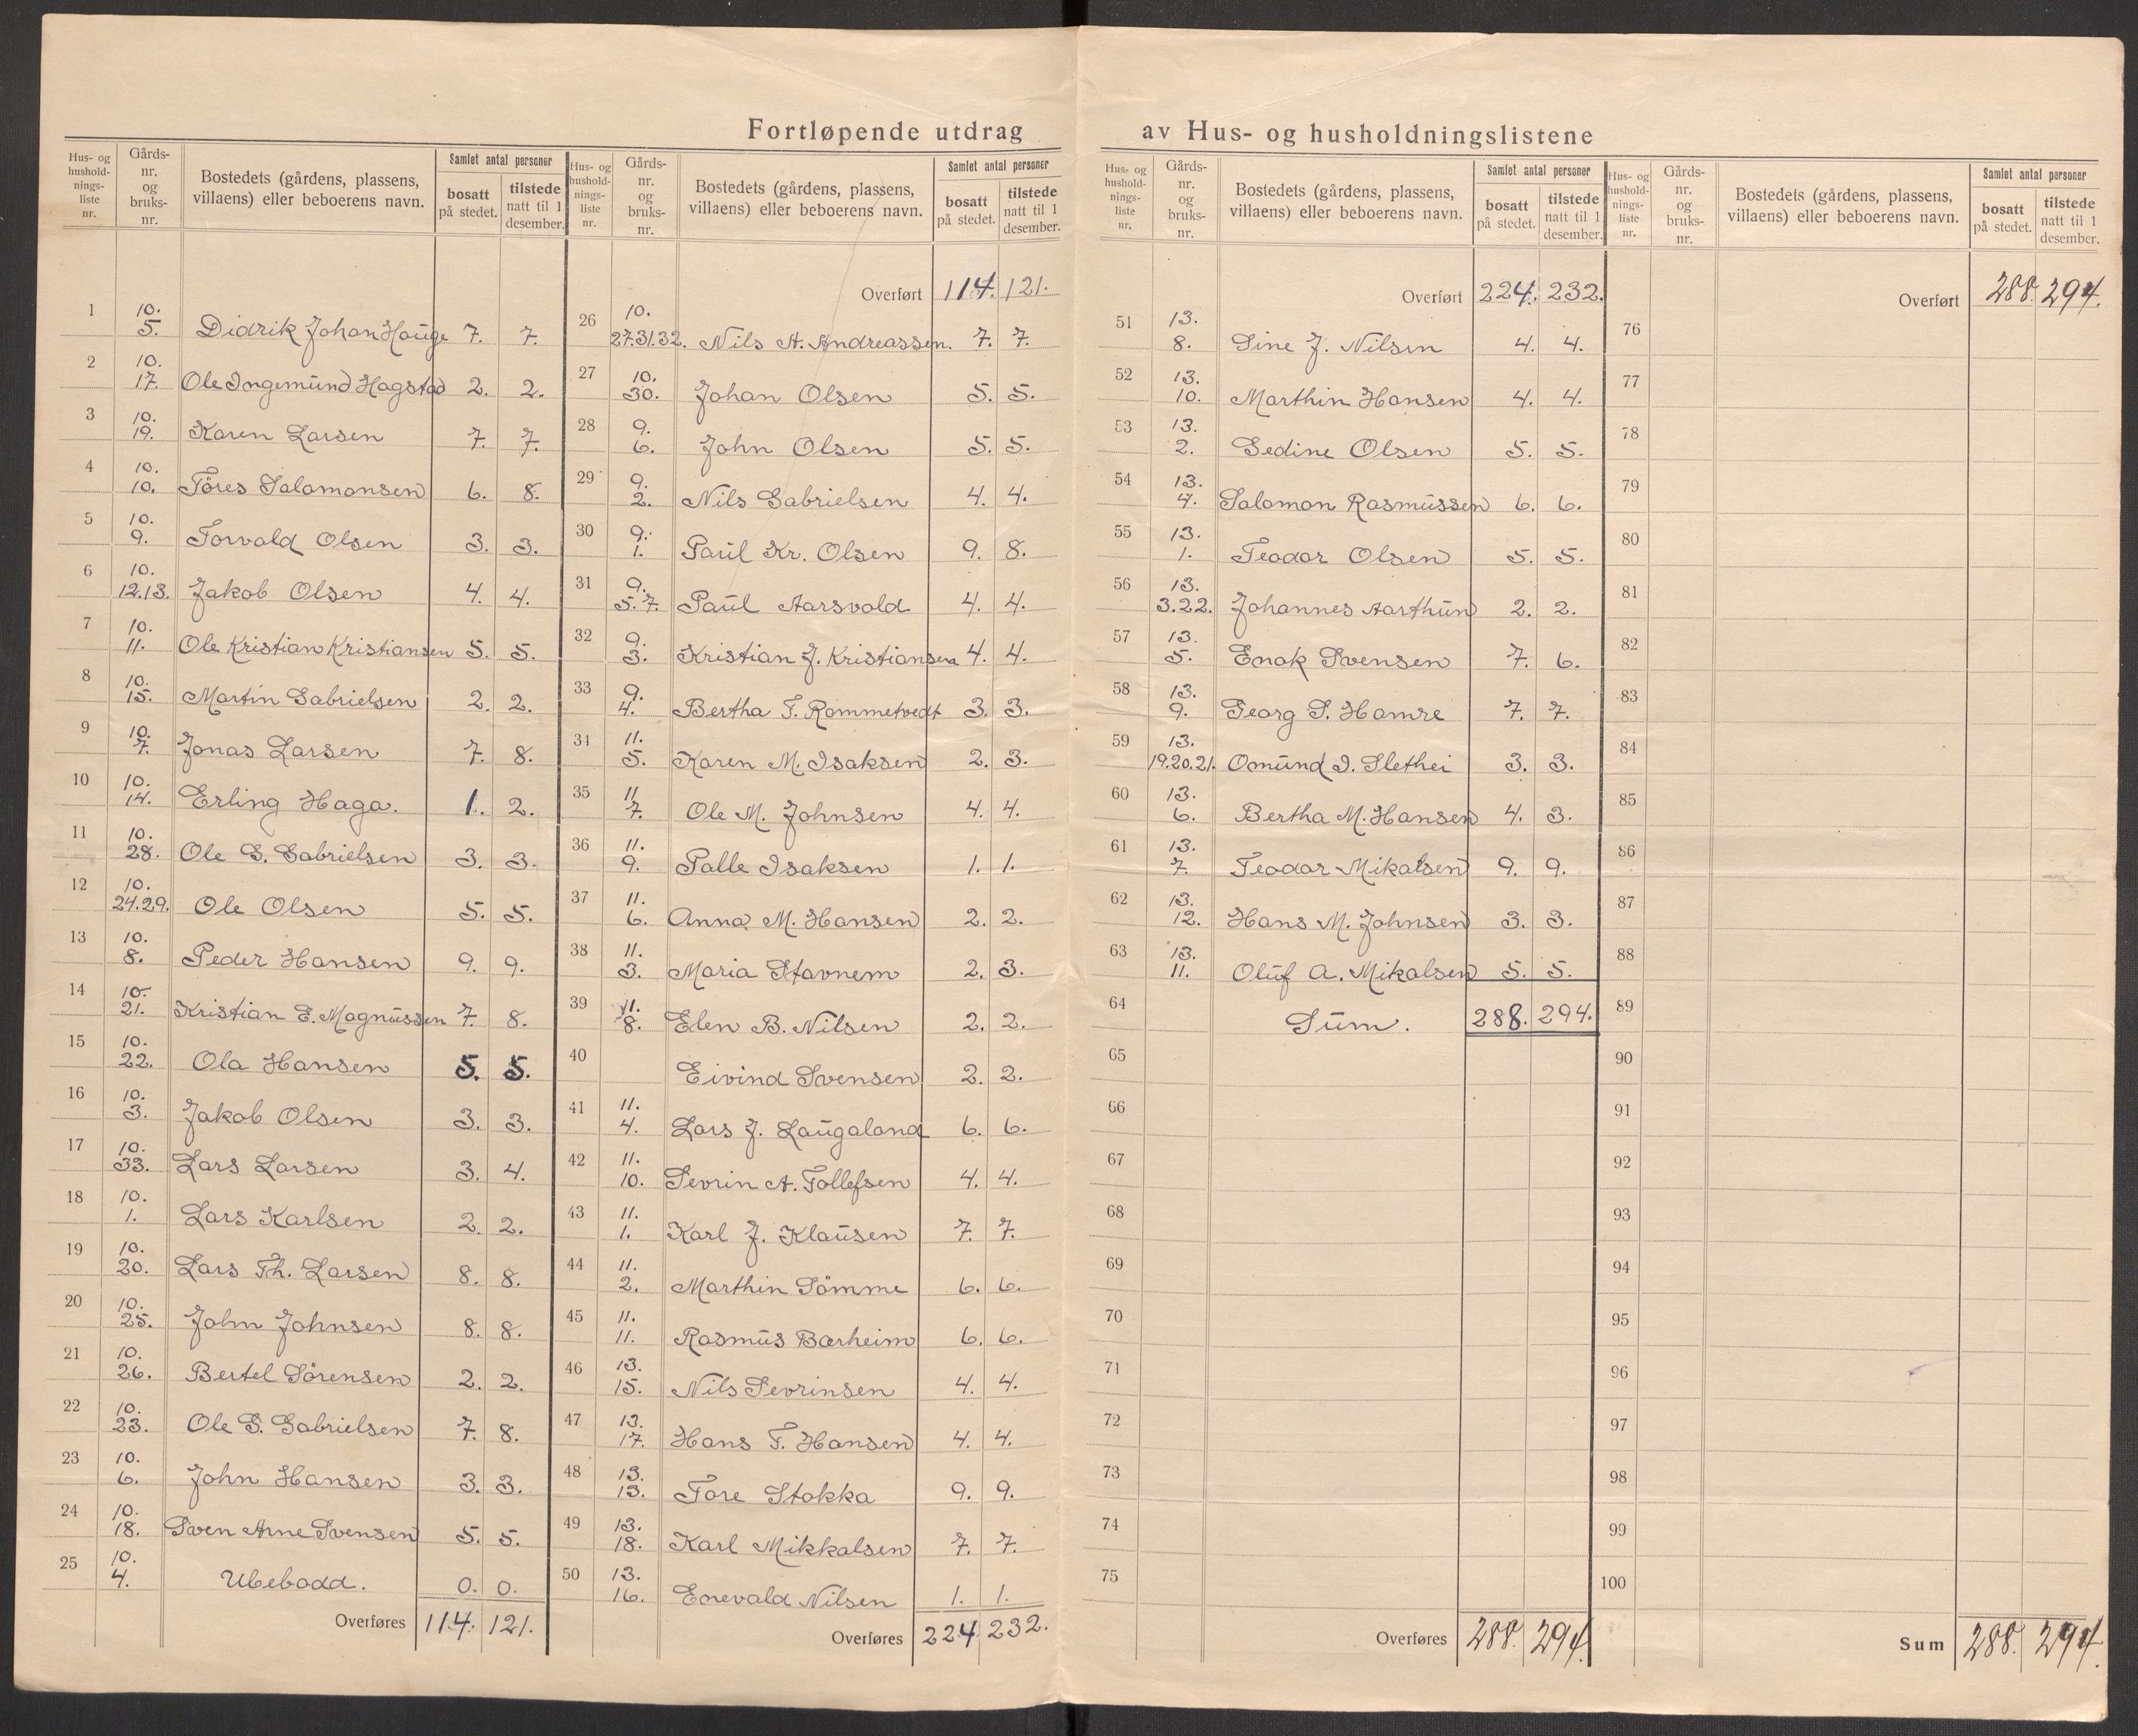 Fortløpende utdrag av Hus- og husholdningslistene
Hus- og husholdnings-liste nr. | Gårds-nr. og bruks-nr. | Bostedets (gårdens, plassens, villaens) eller beboerens navn. | Samlet antal personer bosatt på stedet. | tilstede natt til 1 desember.
1 | 10. 5. | Didrik Johan Hauge | 7. | 7.
2 | 10. 17. | Ole Ingemund Hagstad | 2. | 2.
3 | 10. 19. | Karen Larsen | 7. | 7.
4 | 10. 10. | Töres Salamonsen | 6. | 8.
5 | 10. 9. | Torvald Olsen | 3. | 3.
6 | 10. 12.13. | Jakob Olsen | 4. | 4.
7 | 10. 11. | Ole Kristian Kristiansen | 5. | 5.
8 | 10. 15. | Martin Gabrielsen | 2. | 2.
9 | 10. 7. | Jonas Larsen | 7. | 8.
10 | 10. 14. | Erling Haga. | 1. | 2.
11 | 10. 28. | Ole G. Gabrielsen | 3. | 3.
12 | 10. 24.29. | Ole Olsen | 5. | 5.
13 | 10. 8. | Peder Hansen | 9. | 9.
14 | 10. 21. | Kristian E. Magnussen | 7. | 8.
15 | 10. 22. | Ola Hansen | 5. | 5.
16 | 10. 3. | Jakob Olsen | 3. | 3.
17 | 10. 33. | Lars Larsen | 3. | 4.
18 | 10. 1. | Lars Karlsen | 2. | 2.
19 | 10. 20. | Lars Th. Larsen | 8. | 8.
20 | 10. 25. | John Johnsen | 8. | 8.
21 | 10. 26. | Bertel Sörensen | 2. | 2.
22 | 10. 23. | Ole G. Gabrielsen | 7. | 8.
23 | 10. 6. | John Hansen | 3. | 3.
24 | 10. 18. | Sven Arne Svensen | 5. | 5.
25 | 10. 4. | Ubebodd. | 0. | 0.
Overføres | 114. | 121.
Hus- og husholdnings-liste nr. | Gårds-nr. og bruks-nr. | Bostedets (gårdens, plassens, villaens) eller beboerens navn. | Samlet antal personer bosatt på stedet. | tilstede natt til 1 desember.
Overført | 114. | 121.
26 | 10. 27.31.32. | Nils A. Andreassen. | 7. | 7.
27 | 10. 30. | Johan Olsen | 5. | 5.
28 | 9. 6. | John Olsen | 5. | 5.
29 | 9. 2. | Nils Gabrielsen | 4. | 4.
30 | 9. 1. | Paul Kr. Olsen | 9. | 8.
31 | 9. 5.7. | Paul Aarsvold | 4. | 4.
32 | 9. 3. | Kristian J. Kristiansen | 4. | 4.
33 | 9. 4. | Bertha T. Rommetvedt | 3. | 3.
34 | 11. 5. | Karen M. Isaksen | 2. | 3.
35 | 11 7. | Ole M. Johnsen | 4. | 4.
36 | 11. 9. | Palle Isaksen | 1. | 1.
37 | 11. 6. | Anna M. Hansen | 2. | 2.
38 | 11. 3. | Maria Stavnem | 2. | 3.
39 | 11. 8. | Elen B. Nilsen | 2. | 2.
40 | Eivind Svensen | 2. | 2.
41 | 11. 4. | Lars J. Laugaland | 6. | 6.
42 | 11. 10. | Sevrin A. Tollefsen | 4. | 4.
43 | 11. 1. | Karl J. Klausen | 7. | 7.
44 | 11. 2. | Marthin Sömme | 6. | 6.
45 | 11. 11. | Rasmus Bærheim | 6. | 6.
46 | 13. 15. | Nils Sevrinsen | 4. | 4.
47 | 13. 17. | Hans T. Hansen | 4. | 4.
48 | 13. 13. | Tore Stokka | 9. | 9.
49 | 13. 18. | Karl Mikkalsen | 7. | 7.
50 | 13. 16. | Enevald Nilsen | 1. | 1.
Overføres | 224 | 232.
Hus- og husholdnings-liste nr. | Gårds-nr. og bruks-nr. | Bostedets (gårdens, plassens, villaens) eller beboerens navn. | Samlet antal personer bosatt på stedet. | tilstede natt til 1 desember.
Overført | 224. | 232.
51 | 13. 8. | Sine J. Nilsen | 4. | 4.
52 | 13. 10. | Marthin Hansen | 4. | 4.
53 | 13. 2. | Sedine Olsen | 5. | 5.
54 | 13. 4. | Salomon Rasmussen | 6. | 6.
55 | 13. 1. | Teodor Olsen | 5. | 5.
56 | 13. 3.22. | Johannes Aarthun | 2. | 2.
57 | 13. 5. | Enok Svensen | 7. | 6.
58 | 13. 9. | Georg S. Hamre | 7. | 7.
59 | 13. 19.20.21. | Omund I. Slethei | 3. | 3.
60 | 13. 6. | Bertha M. Hansen | 4. | 3.
61 | 13. 7. | Teodor Mikalsen | 9. | 9.
62 | 13. 12. | Hans M. Johnsen | 3. | 3.
63 | 13. 11. | Oluf A. Mikalsen | 5. | 5.
64 | Sum. | 288. | 294.
65
66
67
68
69
70
71
72
73
74
75
Overføres | 288. | 294.
Hus- og husholdnings-liste nr. | Gårds-nr. og bruks-nr. | Bostedets (gårdens, plassens, villaens) eller beboerens navn. | Samlet antal personer bosatt på stedet. | tilstede natt til 1 desember.
Overført | 288. | 294.
76
77
78
79
80
81
82
83
84
85
86
87
88
89
90
91
92
93
94
95
96
97
98
99
100
Sum | 288. | 294.